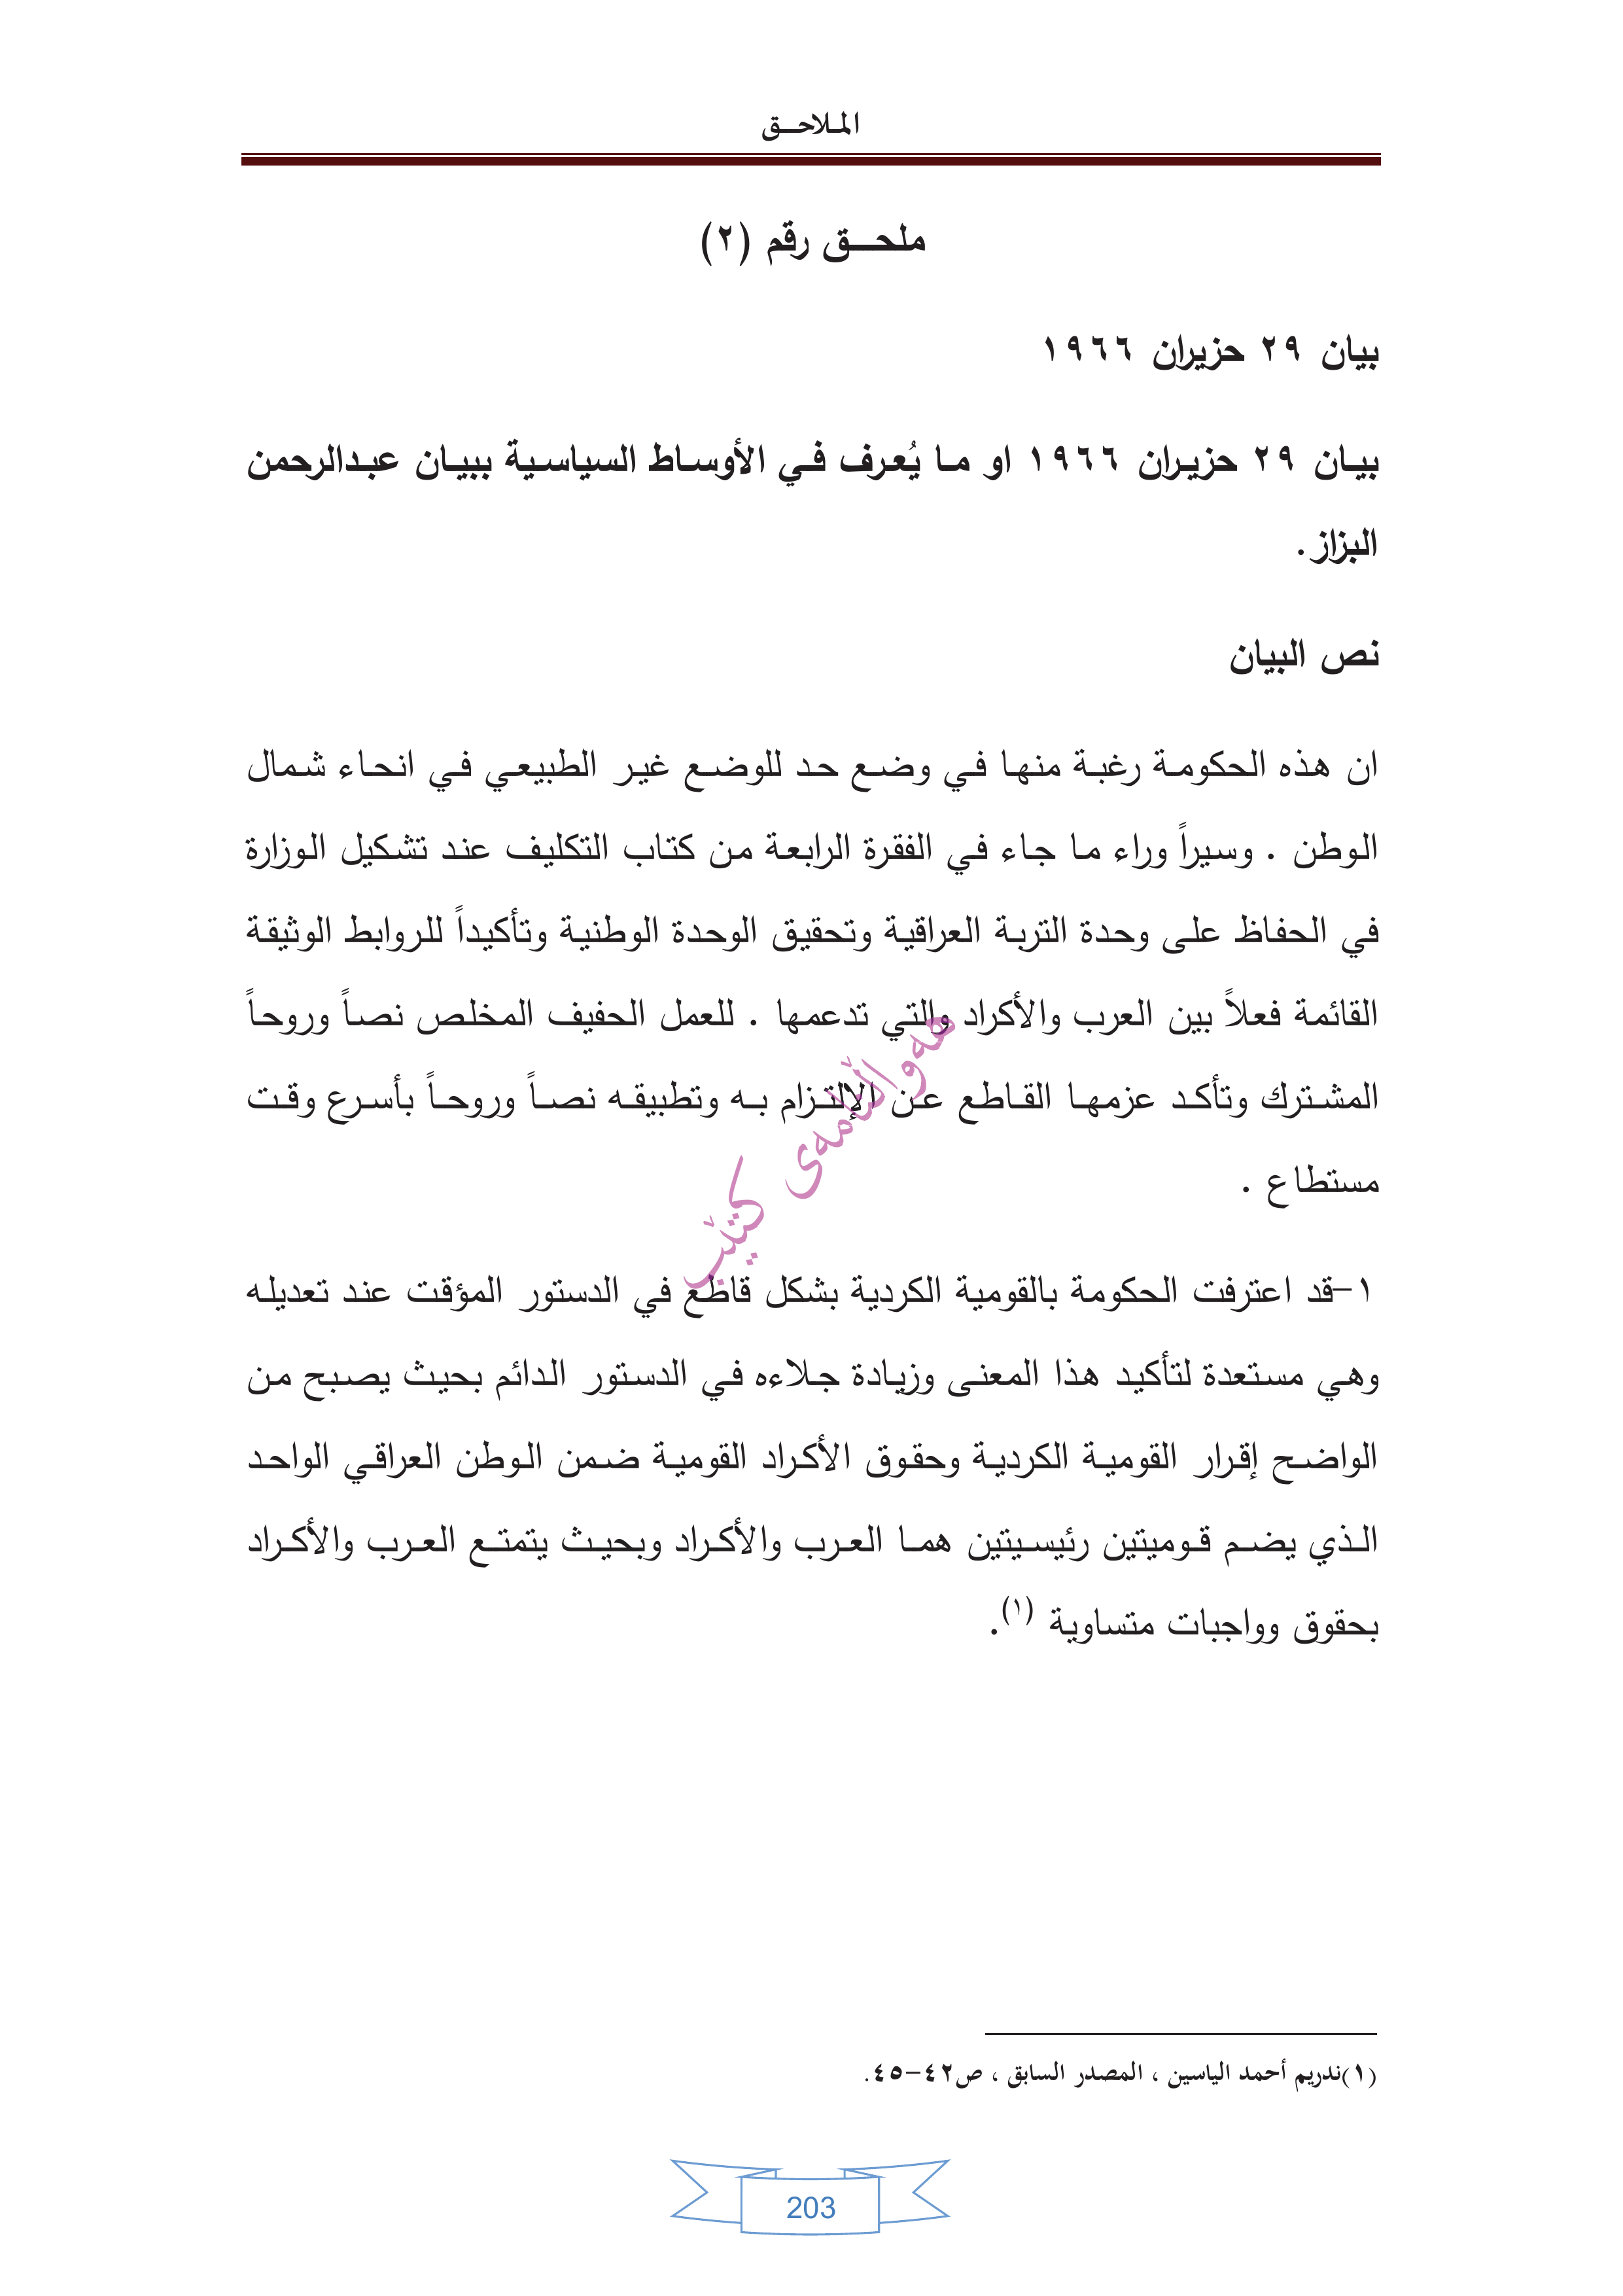 الملاحـــق
ملحـــق رقم (٢)
بيان ٢٩ حزيران ١٩٦٦
بيان ٢٩ حزيران ١٩٦٦ او ما يُعرف في الأوساط السياسية ببيان عبدالرحمن
البزاز.
نص البيان
ان هذه الحكومة رغبة منها في وضع حد للوضع غير الطبيعي في انحاء شمال
الوطن . وسيراً وراء ما جاء في الفقرة الرابعة من كتاب التكليف عند تشكيل الوزارة
في الحفاظ على وحدة التربة العراقية وتحقيق الوحدة الوطنية وتأكيداً للروابط الوثيقة
القائمة فعلاً بين العرب والأكراد والتي تدعمها . للعمل الحفيف المخلص نصاً وروحاً
المشترك وتأكد عزمها القاطع عن الإلتزام به وتطبيقه نصاً وروحاً بأسرع وقت
مستطاع .
١-قد اعترفت الحكومة بالقومية الكردية بشكل قاطع في الدستور المؤقت عند تعديله
وهي مستعدة لتأكيد هذا المعنى وزيادة جلاءه في الدستور الدائم بحيث يصبح من
الواضح إقرار القومية الكردية وحقوق الأكراد القومية ضمن الوطن العراقي الواحد
الذي يضم قوميتين رئيسيتين هما العرب والأكراد وبحيث يتمتع العرب والأكراد
بحقوق وواجبات متساوية (١).
هەواڵنامەی کتێب
(١)ندريم أحمد الياسين ، المصدر السابق ، ص٤٢-٤٥.
203